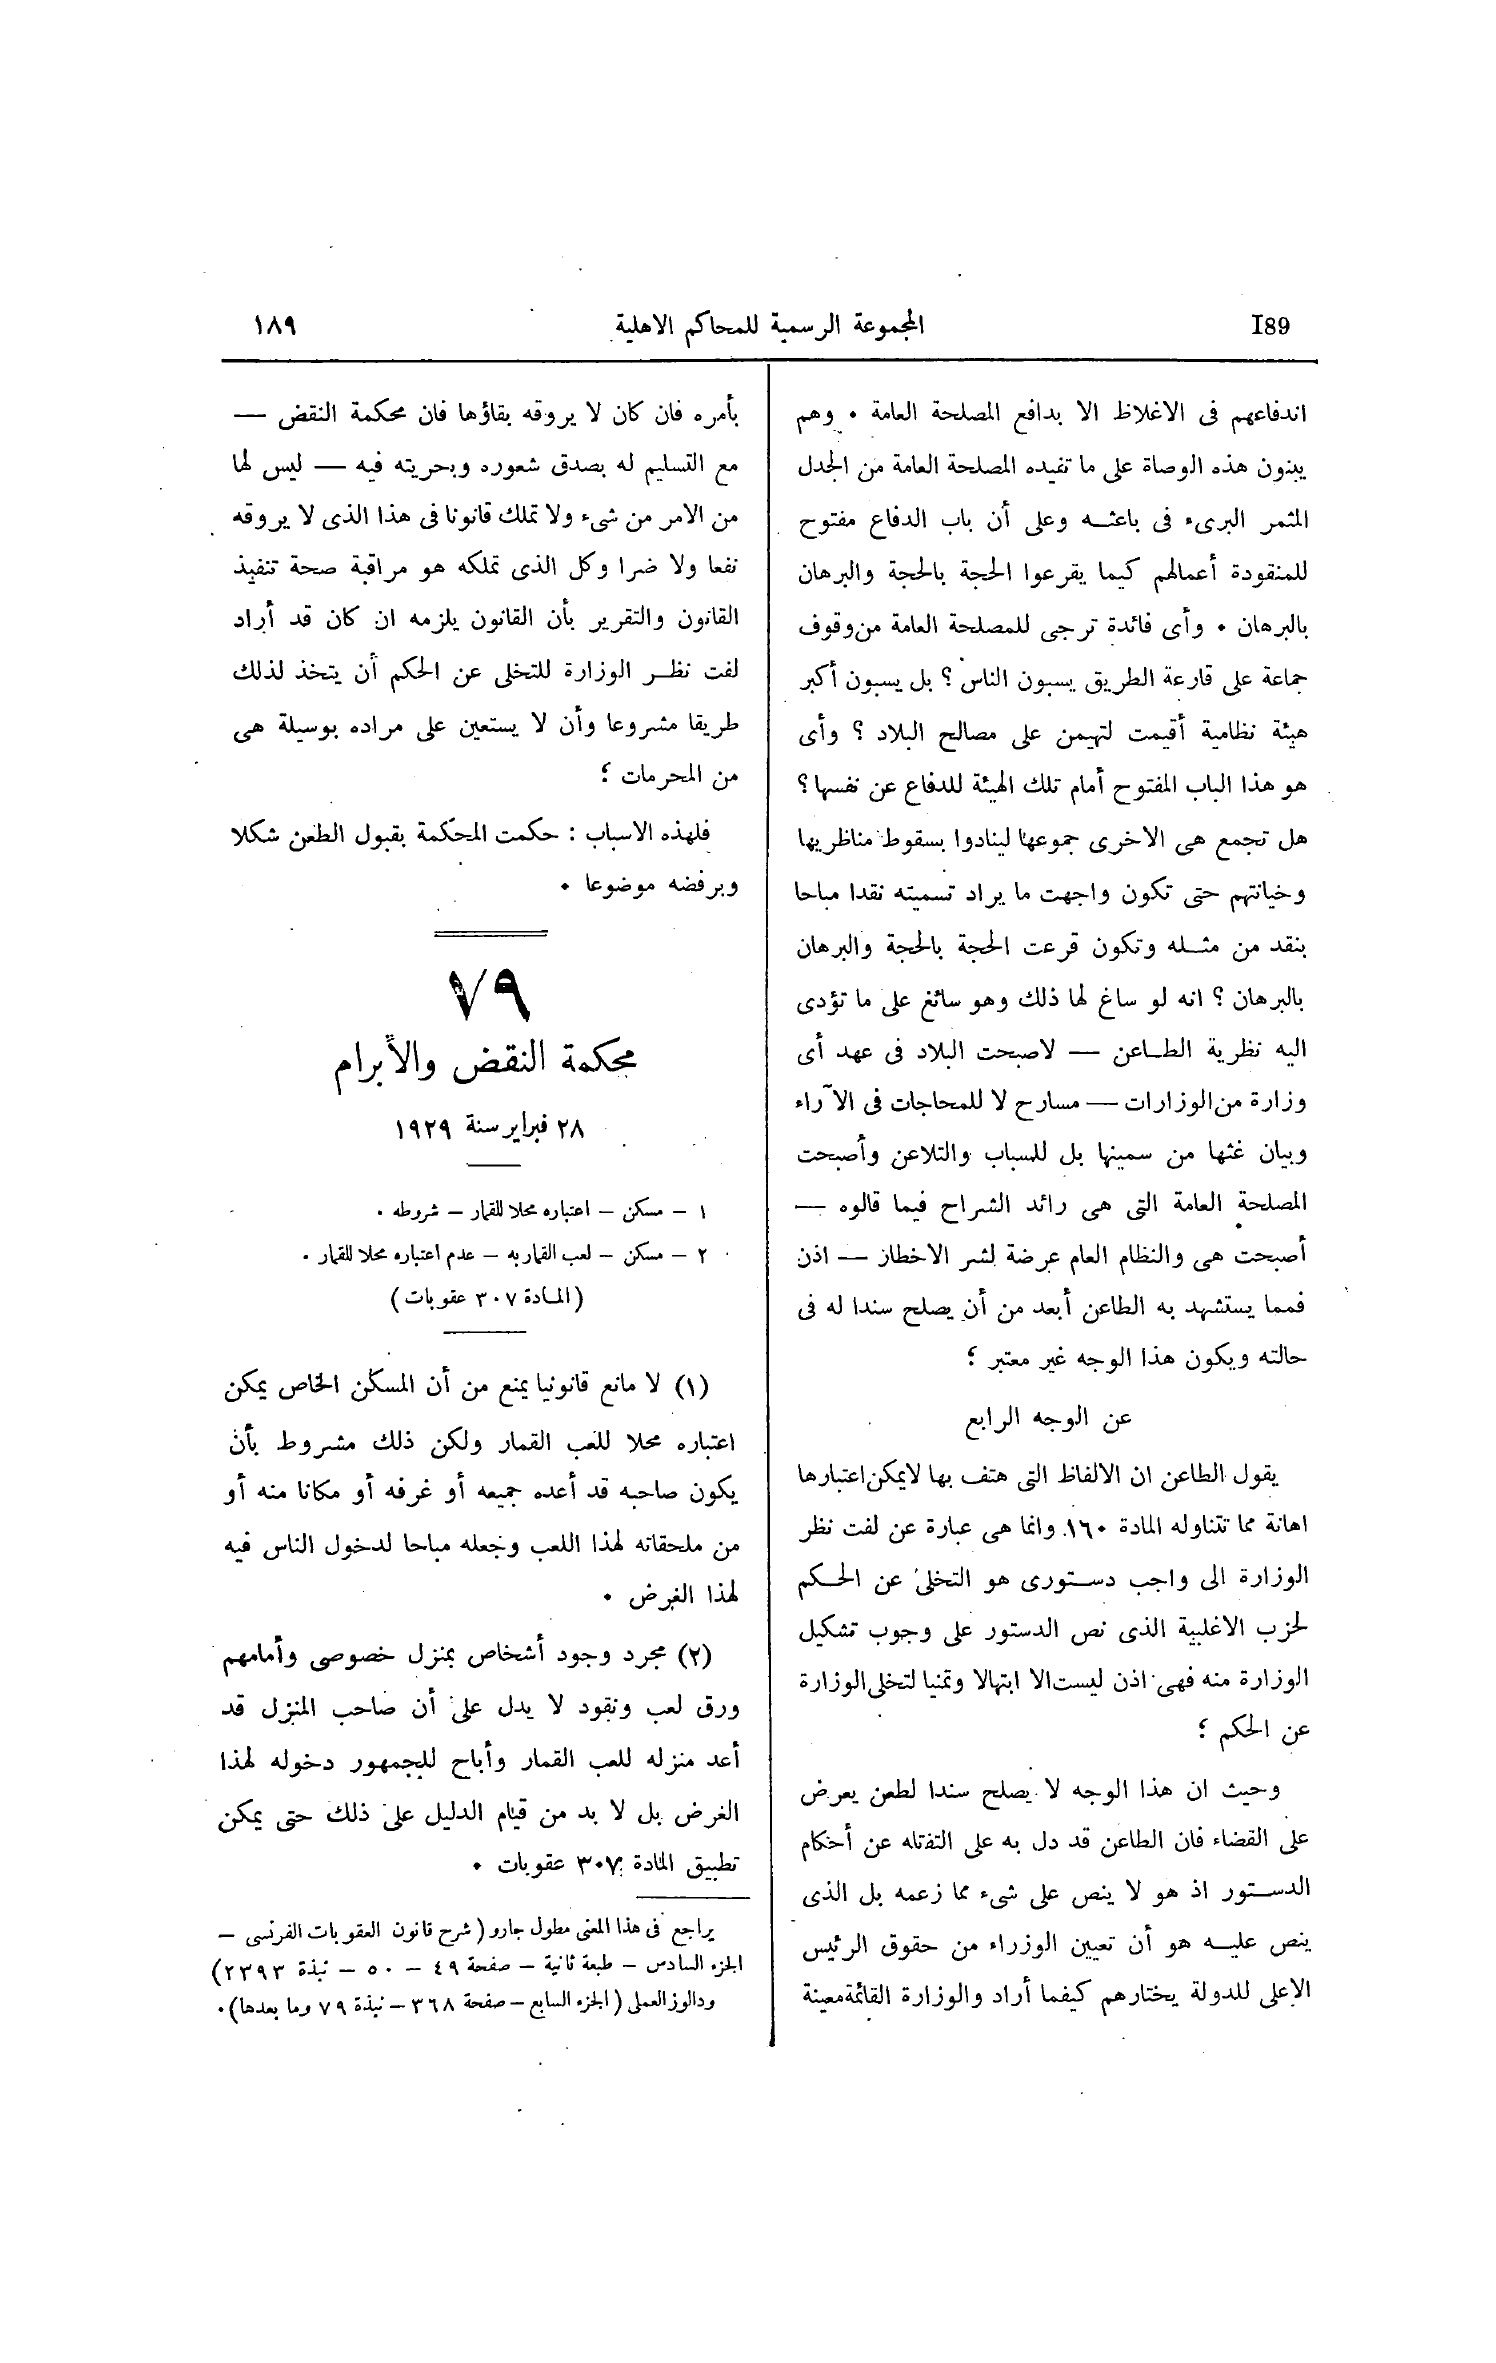 189
المجموعة الرسمية للمحاكم الاهلية
١٨٩
اندفاعهم فى الاغلاظ الا بدافع المصلحة العامة . وهم
يبنون هذه الوصاة على ما تفيده المصلحة العامة من الجدل
المثمر البرىء فى باعثه وعلى أن باب الدفاع مفتوح
للمنقودة أعمالهم كيما يقرعوا الحجة بالحجة والبرهان
بالبرهان . وأى فائدة ترجى للمصلحة العامة من وقوف
جماعة على قارعة الطريق يسبون الناس ؟ بل يسبون أكبر
هيئة نظامية أقيمت لتهيمن على مصالح البلاد ؟ وأى
هو هذا الباب المفتوح أمام تلك الهيئة للدفاع عن نفسها ؟
هل تجمع هى الاخرى جموعها لينادوا بسقوط مناظريها
وخيانتهم حتى تكون واجهت ما يراد تسميته نقدا مباحا
بنقد من مثله وتكون قرعت الحجة بالحجة والبرهان
بالبرهان ؟ انه لو ساغ لها ذلك وهو سائغ على ما تؤدى
اليه نظرية الطاعن — لاصبحت البلاد فى عهد أى
وزارة من الوزارات — مسارح لا للمحاجات فى الآراء
وبيان غثها من سمينها بل للسباب والتلاعن وأصبحت
المصلحة العامة التى هى رائد الشراح فيما قالوه —
أصبحت هى والنظام العام عرضة لشر الاخطار — اذن
فمما يستشهد به الطاعن أبعد من أن يصلح سندا له فى
حالته ويكون هذا الوجه غير معتبر ؛
عن الوجه الرابع
يقول الطاعن ان الالفاظ التى هتف بها لا يمكن اعتبارها
اهانة مما تتناوله المادة ١٦٠ وانما هى عبارة عن لفت نظر
الوزارة الى واجب دستورى هو التخلى عن الحكم
لحزب الاغلبية الذى نص الدستور على وجوب تشكيل
الوزارة منه فهى اذن ليست الا ابتهالا وتمنيا لتخلى الوزارة
عن الحكم ؛
وحيث ان هذا الوجه لا يصلح سندا لطعن يعرض
على القضاء فان الطاعن قد دل به على التفتاته عن أحكام
الدستور اذ هو لا ينص على شىء مما زعمه بل الذى
ينص عليه هو أن تعيين الوزراء من حقوق الرئيس
الاعلى للدولة يختارهم كيفما أراد والوزارة القائمة معينة
بأمره فان كان لا يروقه بقاؤها فان محكمة النقض —
مع التسليم له بصدق شعوره وبحريته فيه — ليس لها
من الامر من شىء ولا تملك قانونا فى هذا الذى لا يروقه
نفعا ولا ضرا وكل الذى تملكه هو مراقبة صحة تنفيذ
القانون والتقرير بأن القانون يلزمه ان كان قد أراد
لفت نظر الوزارة للتخلى عن الحكم أن يتخذ لذلك
طريقا مشروعا وأن لا يستعين على مراده بوسيلة هى
من المحرمات ؛
فلهذه الاسباب : حكمت المحكمة بقبول الطعن شكلا
وبرفضه موضوعا .
٧٩
محكمة النقض والأبرام
٢٨ فبراير سنة ١٩٢٩
١ – مسكن – اعتباره محلا للقمار – شروطه .
٢ – مسكن – لعب القمار به – عدم اعتباره محلا للقمار .
(المادة ٣٠٧ عقوبات)
(١) لا مانع قانونيا يمنع من أن المسكن الخاص يمكن
اعتباره محلا للعب القمار ولكن ذلك مشروط بأن
يكون صاحبه قد أعده جميعه أو غرفه أو مكانا منه أو
من ملحقاته لهذا اللعب وجعله مباحا لدخول الناس فيه
لهذا الغرض .
(٢) مجرد وجود أشخاص بمنزل خصوصى وأمامهم
ورق لعب ونقود لا يدل على أن صاحب المنزل قد
أعد منزله للعب القمار وأباح للجمهور دخوله لهذا
الغرض بل لا بد من قيام الدليل على ذلك حتى يمكن
تطبيق المادة ٣٠٧ عقوبات .
يراجع فى هذا المعنى مطول جارو (شرح قانون العقوبات الفرنسى –
الجزء السادس – طبعة ثانية – صفحة ٤٩ – ٥٠ – نبذة ٢٣٩٣)
ودالوز العملى (الجزء السابع – صفحة ٣٦٨ – نبذة ٧٩ وما بعدها) .